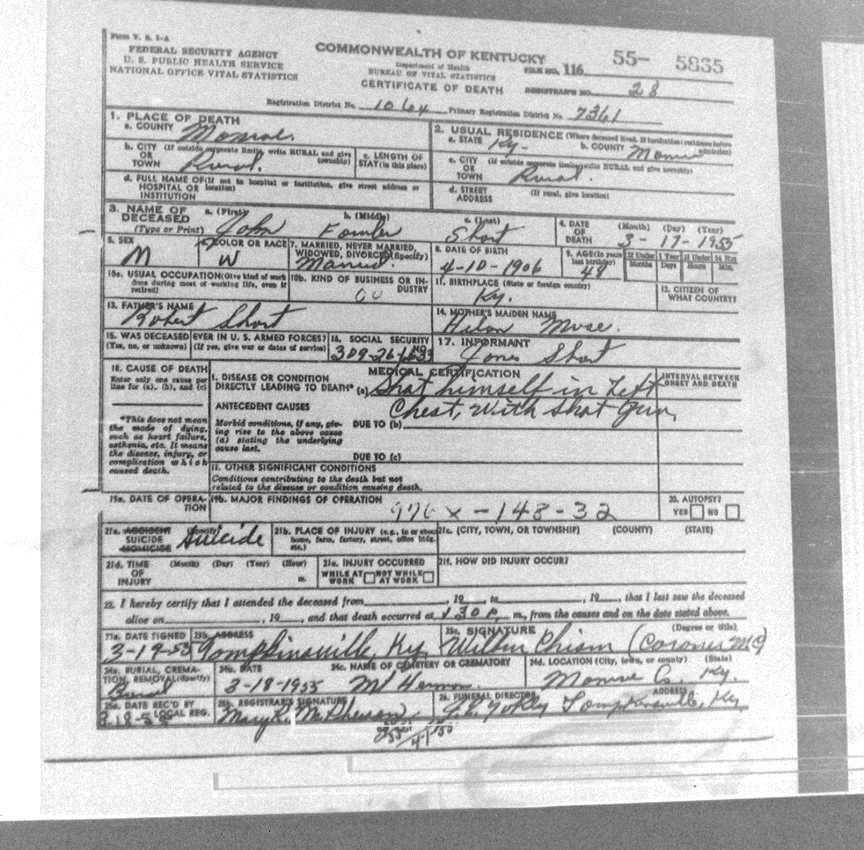 Form V. S. 1-A
FEDERAL SECURITY AGENCY
U. S. PUBLIC HEALTH SERVICE
NATIONAL OFFICE VITAL STATISTICS
COMMONWEALTH OF KENTUCKY
Department of Health
BUREAU OF VITAL STATISTICS
CERTIFICATE OF DEATH
FILE NO. 116 55- 5835
REGISTRAR'S NO. 28
Registration District No. 1064 Primary Registration District No. 7361
1. PLACE OF DEATH
a. COUNTY Monroe
b. CITY (If outside corporate limits, write RURAL and give township)
OR TOWN Rural
c. LENGTH OF STAY (in this place)
d. FULL NAME OF (If not in hospital or institution, give street address or location)
HOSPITAL OR INSTITUTION
2. USUAL RESIDENCE (Where deceased lived. If institution: residence before admission)
a. STATE Ky. b. COUNTY Monroe
c. CITY (If outside corporate limits, write RURAL and give township)
OR TOWN Rural.
d. STREET ADDRESS (If rural, give location)
3. NAME OF DECEASED (Type or Print)
a. (First) John b. (Middle) Fowler c. (Last) Short
4. DATE OF DEATH (Month) (Day) (Year) 3-17-1955
5. SEX M
6. COLOR OR RACE W
7. MARRIED, NEVER MARRIED, WIDOWED, DIVORCED (Specify) Married
8. DATE OF BIRTH 4-10-1906
9. AGE (In years last birthday) 48
If Under 1 Year Months Days If Under 24 Hrs Hours Min.
10a. USUAL OCCUPATION (Give kind of work done during most of working life, even if retired)
10b. KIND OF BUSINESS OR INDUSTRY
11. BIRTHPLACE (State or foreign country) Ky.
12. CITIZEN OF WHAT COUNTRY?
13. FATHER'S NAME Robert Short
14. MOTHER'S MAIDEN NAME
15. WAS DECEASED EVER IN U. S. ARMED FORCES?
(Yes, no, or unknown) (If yes, give war or dates of service)
16. SOCIAL SECURITY
17. INFORMANT Short
18. CAUSE OF DEATH
Enter only one cause per line for (a), (b), and (c)
*This does not mean the mode of dying, such as heart failure, asthenia, etc. It means the disease, injury, or complication which caused death.
MEDICAL CERTIFICATION
INTERVAL BETWEEN ONSET AND DEATH
I. DISEASE OR CONDITION DIRECTLY LEADING TO DEATH* (a) Shot himself in Left
Chest, With Shot Gun
ANTECEDENT CAUSES
Morbid conditions, if any, giving rise to the above cause (a) stating the underlying cause last.
DUE TO (b)
DUE TO (c)
II. OTHER SIGNIFICANT CONDITIONS
Conditions contributing to the death but not related to the disease or condition causing death.
19a. DATE OF OPERATION
19b. MAJOR FINDINGS OF OPERATION
976 x - 148 - 32
20. AUTOPSY?
YES NO
21a. ACCIDENT SUICIDE HOMICIDE (Specify) Suicide
21b. PLACE OF INJURY (e.g., in or about home, farm, factory, street, office bldg. etc.)
21c. (CITY, TOWN, OR TOWNSHIP) (COUNTY) (STATE)
21d. TIME OF INJURY (Month) (Day) (Year) (Hour) m.
21e. INJURY OCCURRED
WHILE AT WORK NOT WHILE AT WORK
21f. HOW DID INJURY OCCUR?
22. I hereby certify that I attended the deceased from , 19 to , 19 , that I last saw the deceased
alive on , 19 , and that death occurred at 130 P. m., from the causes and on the date stated above.
23a. DATE SIGNED 3-19-55
23b. ADDRESS Tompkinsville, Ky.
23c. SIGNATURE (Degree or title) Wilbur Chism (Coroner MC)
24a. BURIAL, CREMATION, REMOVAL (Specify) Burial
24b. DATE 3-18-1955
24c. NAME OF CEMETERY OR CREMATORY Mt Hermon
24d. LOCATION (City, town, or county) (State) Monroe Co. Ky.
25a. DATE REC'D BY LOCAL REG. 3-18-55
25b. REGISTRAR'S SIGNATURE Mary R. McPherson
26. FUNERAL DIRECTOR ADDRESS Yokley Tompkinsville, Ky